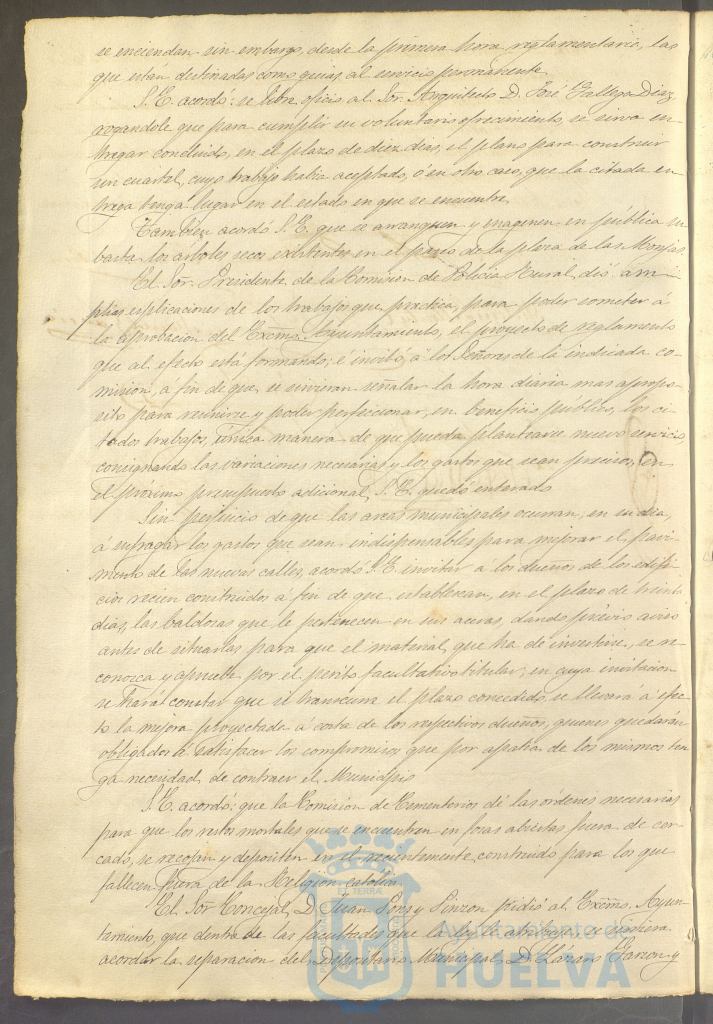 se enciendan sin embargo, desde la primera hora reglamentaria, las
que están destinadas como guias, al servicio permanente.
S. E. acordó: se libre oficio al Sor. Arquitecto D. José Gallego Diaz
rogandole que para cumplir su voluntario ofrecimiento, se sirva en-
tregar concluido, en el plazo de diez dias, el plano para construir
un cuartel, cuyo trabajo habia aceptado, ó en otro caso, que la citada en
trega tenga lugar en el estado en que se encuentre.
Tambien acordó S. E. que se arranquen y enagenen en pública su
basta los arboles secos existentes en el paseo de la plaza de las Monjas.
El Sor. Presidente de la Comision de Policia Rural, dió am-
plias esplicaciones de los trabajos que practica, para poder someter á
la aprobacion del Excmo. Ayuntamiento, el proyecto de reglamento
que al efecto está formando; é invitó á los Señores de la indicada co-
mision, á fin de que se sirvieran señalar la hora diaria mas apropo-
sito para reunirse y poder perfeccionar, en beneficio público, los ci-
tados trabajos, única manera de que pueda plantearse nuevo servicio,
consignando las variaciones necesarias y los gastos que sean precisos, en
el próximo presupuesto adicional. S. E. quedó enterado.
Sin perjuicio de que las arcas municipales ocurran, en su dia,
á sufragar los gastos que sean indispensables para mejorar el pavi-
mento de las nuevas calles, acordó S. E. invitar á los dueños de los edifi-
cios recien construidos á fin de que establezcan, en el plazo de treinta
dias, las baldosas que le pertenecen en sus aceras, dando prévio aviso
antes de situarlas para que el material, que ha de invertirse, se re-
conozca y apruebe por el perito facultativo titular; en cuya invitacion
se hará constar que si transcurre el plazo concedido, se llevará á efec-
to la mejora proyectada á costa de los respectivos dueños, quienes quedarán
obligados á satisfacer los compromisos que por apatia de los mismos ten
ga necesidad de contraer el Municipio.
S. E. acordó: que la Comision de Cementerios dé las órdenes necesarias
para que los restos mortales que se encuentren en fosas abiertas fuera de cer-
cado, se recojan y depositen en el recientemente construido para los que
fallecen fuera de la Religion católica.
El Sor. Concejal, D. Juan Pons y Pinzon pidió al Excmo. Ayun-
tamiento, que dentro de las facultades que la ley le atribuye, se sirviera
acordar la separacion del Depositario Municipal, D. Lázaro Garzon y
Ayuntamiento de
HUELVA